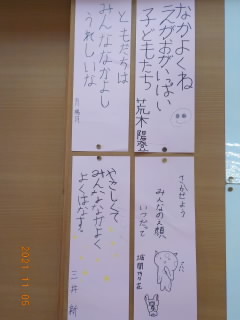 なかよくね
えがおがいっぱい
子どもたち
荒木陽登
ともだちは
みんななかよし
うれしいな
さかせよう
みんなのえ顔
いつだって
やさしくて
みんなとなかよく
よくはなす
三井
2021 11 05